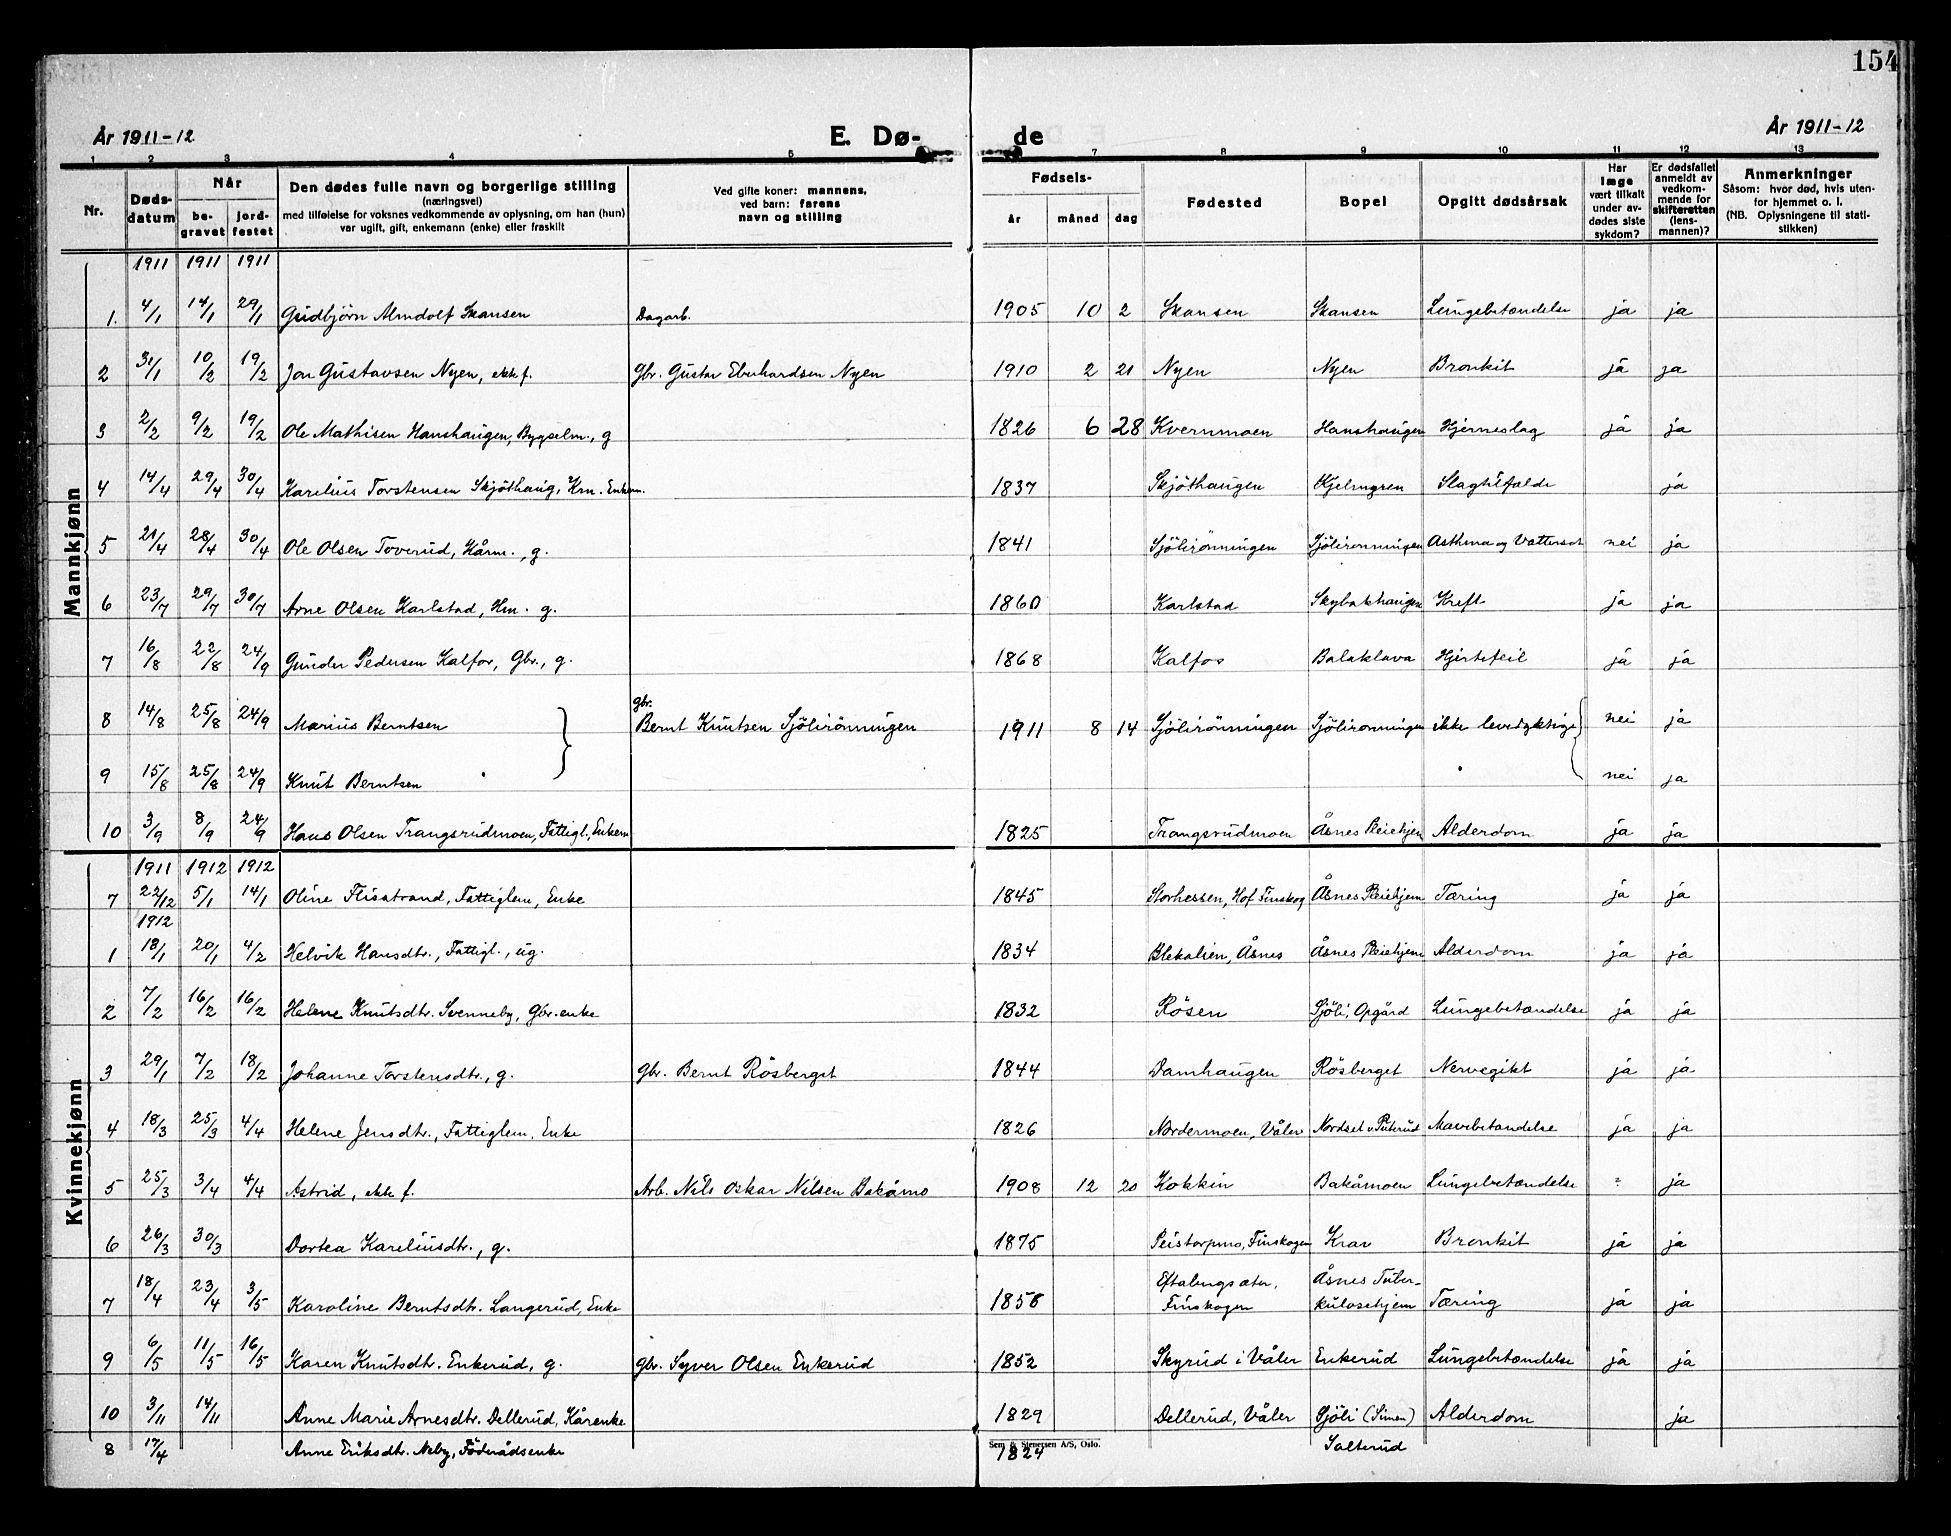 154
År 1911-12
E. Dø-
de
År 1911-12
1 2 3 4 5 7 8 9 10 11 12 13
Nr.
Døds-
datum
Når
be-
gravet
jord-
festet
Den dødes fulle navn og borgerlige stilling
(næringsvei)
med tilføielse for voksnes vedkommende av oplysning, om han (hun)
var ugift, gift, enkemann (enke) eller fraskilt
Ved gifte koner: mannens,
ved barn: farens
navn og stilling
Fødsels-
år måned dag
Fødested
Bopel
Opgitt dødsårsak
Har
læge
vært tilkalt
under av-
dødes siste
sykdom?
Er dødsfallet
anmeldt av
vedkom-
mende for
skifteretten
(lens-
mannen)?
Anmerkninger
Såsom: hvor død, hvis uten-
for hjemmet o. l.
(NB. Oplysningene til stati-
stikken)
Mannkjønn
1911 1911 1911
1. 4/1 14/1 29/1 Gudbjörn Almdolf Skansen Dagarb. 1905 10 2 Skansen Skansen Lungebetændelse ja ja
2 31/1 10/2 19/2 Jon Gustavsen Nyen, ekte f. Gbr. Gustav Eberhardsen Nyen 1910 2 21 Nyen Nyen Bronkit ja ja
3 2/2 9/2 19/2 Ole Mathisen Hanshaugen, Bygselm., g 1826 6 28 Kvernmoen Hanshaugen Hjerneslag ja ja
4 14/4 29/4 30/4 Karelius Torstensen Skjöthaug, Krm. Enkem. 1837 Skjöthaugen Kjelmyren Slagtilfælde ja
5 21/4 28/4 30/4 Ole Olsen Toverud, Kårm., g. 1841 Sjölirönningen Sjölirönningen Asthma og Vattersot nei ja
6 23/7 29/7 30/7 Arne Olsen Karlstad, Hm. g. 1860 Karlstad Skybakhaugen Kreft ja ja
7 16/8 22/8 24/9 Gunder Pedersen Kalfos, Gbr., g. 1868 Kalfos Balaklava Hjertefeil ja ja
8 14/8 25/8 24/9 Marius Berntsen gbr. Bernt Knutsen Sjölirönningen 1911 8 14 Sjölirönningen Sjölirönningen ikke levedyktige nei ja
9 15/8 25/8 24/9 Knut Berntsen nei ja
10 3/9 8/9 24/9 Hans Olsen Trangsrudmoen, Fattigl., Enkem 1825 Trangsrudmoen Åsnes Pleiehjem Alderdom ja ja
Kvinnekjønn
1911 1912 1912
7 22/12 5/1 14/1 Oline Flisstrand, Fattiglem, Enke 1845 Storhessen, Hof Finskog Åsnes Pleiehjem Tæring ja ja
1912
1 18/1 20/1 4/2 Helvik Hansdtr., Fattigl., ug. 1834 Blekalien, Åsnes Åsnes Pleiehjem Alderdom ja ja
2 7/2 16/2 16/2 Helene Knutsdtr. Svenneby, Gbr.enke 1832 Rösen Sjöli, Opgård Lungebetændelse ja ja
3 29/1 7/2 18/2 Johanne Torstensdtr., g. gbr. Bernt Rösberget 1844 Damhaugen Rösberget Nervegikt ja ja
4 18/3 25/3 4/4 Helene Jensdtr., Fattiglem, Enke 1826 Nordermoen, Våler Nordset v. Puterud Mavebetændelse ja ja
5 25/3 3/4 4/4 Astrid, ekte f. Arb. Nils Oskar Nilsen Bakåmo 1908 12 20 Kokkin Bakåmoen Lungebetændelse ja
6 26/3 30/3 Dortea Kareliusdtr., g. 1875 Peistorpmo, Finskogen Krav Bronkit ja ja
7 18/4 23/4 3/5 Karoline Berntsdtr. Langerud, Enke 1856 Eftalungsæter, Finskogen Åsnes Tuber-kulosehjem Tæring ja ja
9 6/5 11/5 16/5 Karen Knutsdtr. Enkerud, g. gbr. Syver Olsen Enkerud 1852 Skyrud i Våler Enkerud Lungebetændelse ja ja
10 3/11 14/11 Anne Marie Arnesdtr. Dellerud, Kårenke 1829 Dellerud, Våler Sjöli (Simen) Alderdom ja
8 17/4 Anne Eriksdtr. Neby, Föderådsenke 1824 Salterud
Sem & Stenersen A/S, Oslo.